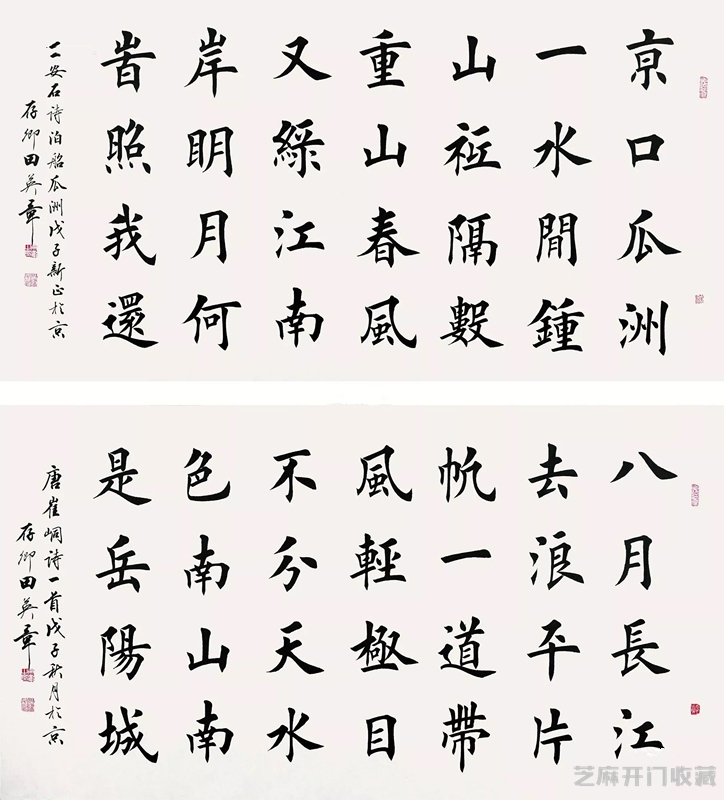 亰口瓜洲
一水間鍾
山祗隔數
重山春風
又綠江南
岸眀月何
旹照我還
王安石诗泊船瓜洲戊子新正於京
存卿田英章
八月長江
去浪平片
帆一道帶
風輕極目
不分天水
色南山南
是岳陽城
唐崔峒诗一首戊子秋月於京
存卿田英章
芝麻开门收藏